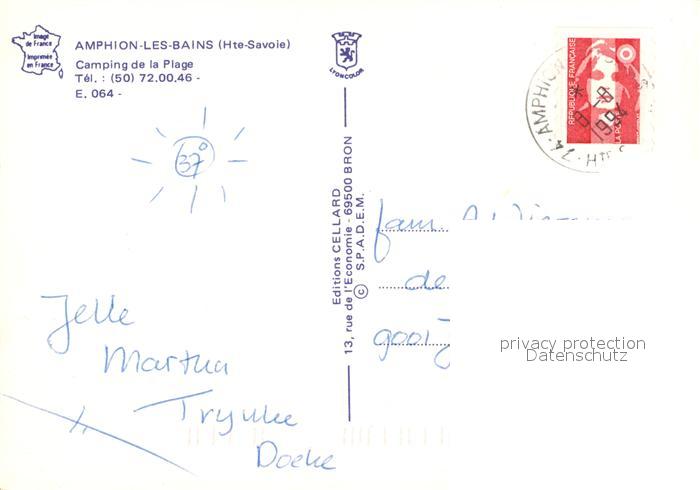 Image
de France
Imprimée
en France
AMPHION-LES-BAINS (Hte-Savoie)
Camping de la Plage
Tél. : (50) 72.00.46 -
E. 064 -
LYONCOLOR
37°
Jelle
Martha
Trynke
Doeke
Editions CELLARD
13, rue de l'Economie - 69500 BRON
© S.P.A.D.E.M.
REPUBLIQUE FRANÇAISE
LA POSTE
74 · AMPHION
fam.
de
gooi
privacy protection
Datenschutz